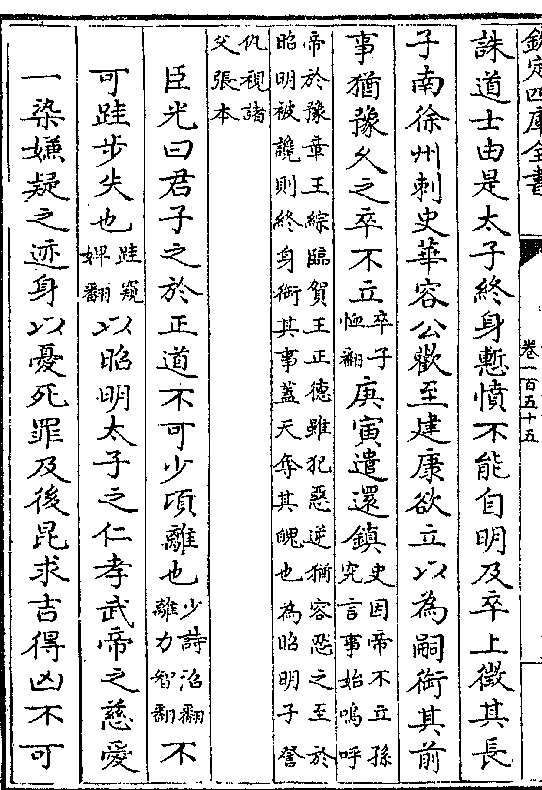 欽定四庫全書
卷一百五十五
誅道士由是太子終身慙憤不能自明及卒上徵其長
子南徐州刺史華容公歡至建康欲立以為嗣銜其前
事猶豫久之卒不立卒子恤翻庚寅遣還鎮史因帝不立孫究言事始嗚呼
帝於豫章王綜臨賀王正德雖犯惡逆猶容忍之至於
昭明被讒則終身銜其事蓋天奪其魄也為昭明子詧
仇視諸
父張本
臣光曰君子之於正道不可少頃離也少詩沼翻離力智翻不
可跬步失也跬窺婢翻以昭明太子之仁孝武帝之慈愛
一染嫌疑之迹身以憂死罪及後昆求吉得凶不可